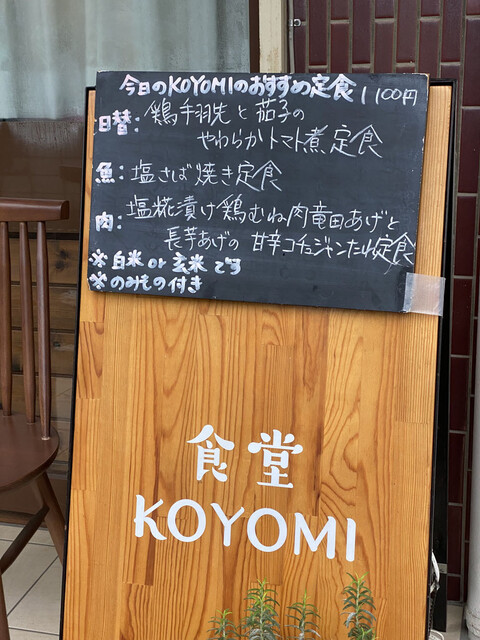 今日のKOYOMIのおすすめ定食 1100円
日替: 鶏手羽先と茄子の
やわらかトマト煮定食
魚: 塩さば焼き定食
肉: 塩糀漬け鶏むね肉竜田あげと
長芋あげの 甘辛コチュジャンたれ定食
※白米or玄米です
※のみもの付き
食堂
KOYOMI